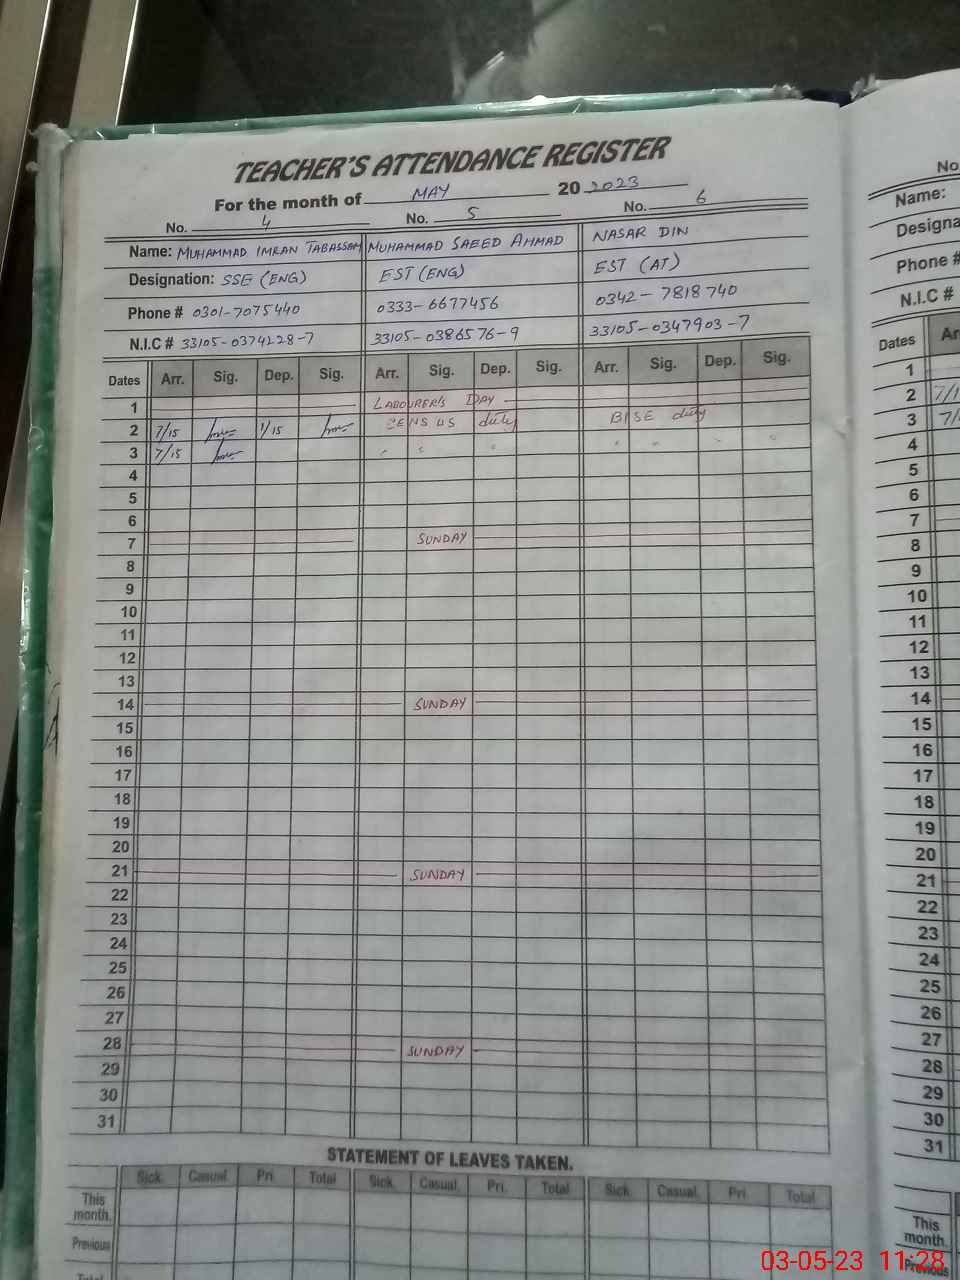 TEACHER'S ATTENDANCE REGISTER
For the month of MAY 20 2023
No. 4 No. 5 No. 6
Name: MUHAMMAD IMRAN TABASSAM MUHAMMAD SAEED AHMAD NASAR DIN
Designation: SSE (ENG) EST (ENG) EST (AT)
Phone # 0301-7075440 0333-6677456 0342-7818740
N.I.C # 33105-0374228-7 33105-0386576-9 33105-0347903-7
Dates Arr. Sig. Dep. Sig. Arr. Sig. Dep. Sig. Arr. Sig. Dep. Sig.
1 LABOURER'S DAY
2 7/15 1/15 CENSUS duty BISE duty
3 7/15 " " " " " " "
4
5
6
7 SUNDAY
8
9
10
11
12
13
14 SUNDAY
15
16
17
18
19
20
21 SUNDAY
22
23
24
25
26
27
28 SUNDAY
29
30
31
STATEMENT OF LEAVES TAKEN.
Sick. Casual. Pri. Total Sick. Casual. Pri. Total Sick. Casual. Pri. Total
This
month.
Previous
Total
No
Name:
Designa
Phone #
N.I.C #
Dates Ar
1
2 7/1
3 7/
4
5
6
7
8
9
10
11
12
13
14
15
16
17
18
19
20
21
22
23
24
25
26
27
28
29
30
31
This
month.
Previous
03-05-23 11:28